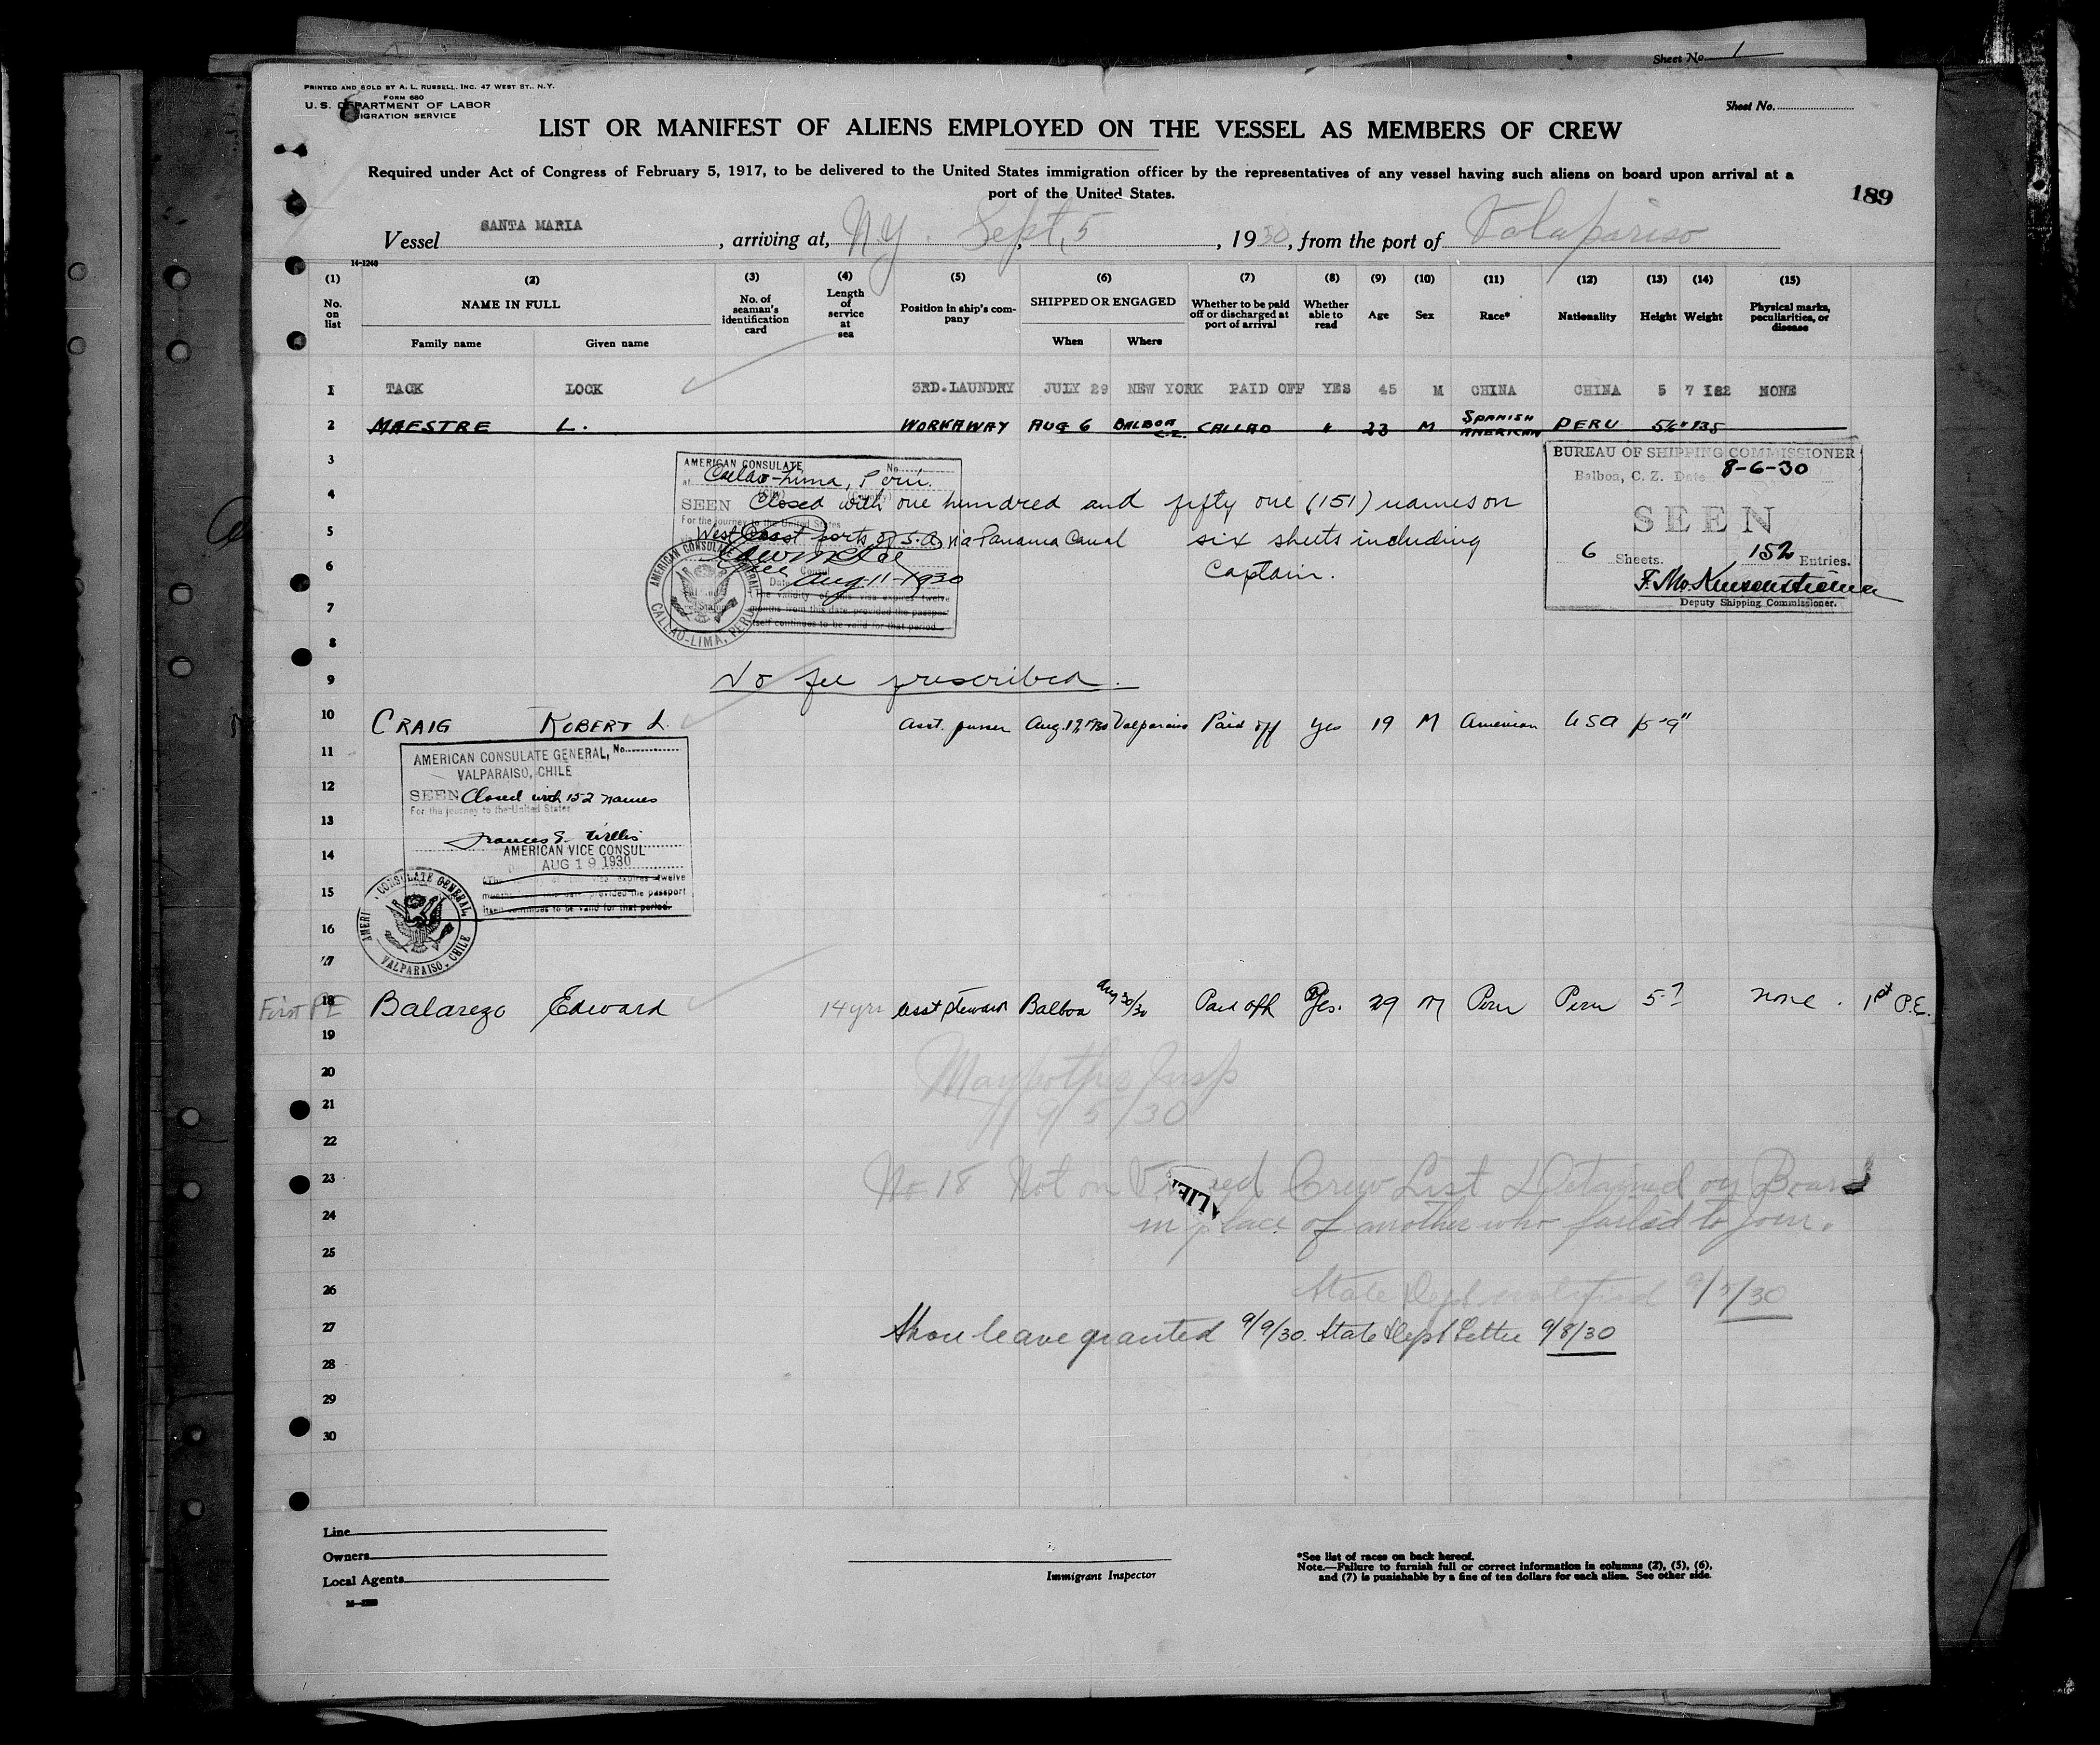 Sheet No. 1
PRINTED AND SOLD BY A. L. RUSSELL, INC. 47 WEST ST., N.Y.
FORM 680
U. S. DEPARTMENT OF LABOR
IGRATION SERVICE
Sheet No.
LIST OR MANIFEST OF ALIENS EMPLOYED ON THE VESSEL AS MEMBERS OF CREW
Required under Act of Congress of February 5, 1917, to be delivered to the United States immigration officer by the representatives of any vessel having such aliens on board upon arrival at a
port of the United States.
189
Vessel SANTA MARIA, arriving at, N.Y. Sept, 5, 1930, from the port of Valapariso
14-1240
(1) (2) (3) (4) (5) (6) (7) (8) (9) (10) (11) (12) (13) (14) (15)
No. on list
NAME IN FULL
Family name
Given name
No. of seaman's identification card
Length of service at sea
Position in ship's company
SHIPPED OR ENGAGED
When
Where
Whether to be paid off or discharged at port of arrival
Whether able to read
Age
Sex
Race*
Nationality
Height
Weight
Physical marks, peculiarities, or disease
1 TACK LOCK 3RD.LAUNDRY JULY 29 NEW YORK PAID OFF YES 45 M CHINA CHINA 5 7 182 NONE
2 MAESTRE L. WORKAWAY AUG 6 BALBOA C.Z. CALLAO " 23 M SPANISH AMERICAN PERU 5'6" 135
3
4
5
6
7
8
AMERICAN CONSULATE No.
at Callao-Lima, Peru.
(City) (Country)
SEEN Closed with one hundred and fifty one (151) names on
For the journey to the United States
West Coast Ports of S.A. via Panama Canal six sheets including
Captain.
Consul
Date Aug. 11-1930
The validity of this visa expires twelve
months from this date provided the passport
itself continues to be valid for that period.
AMERICAN CONSULATE GENERAL, CALLAO-LIMA, PERU
BUREAU OF SHIPPING COMMISSIONER
Balboa, C. Z. Date 8-6-30
SEEN
6 Sheets. 152 Entries.
Deputy Shipping Commissioner.
9 No fee prescribed.
10 CRAIG ROBERT L. asst. purser Aug. 19, 1930 Valparaiso Paid off Yes 19 M American USA 5'-9"
11
12
13
14
15
16
17
AMERICAN CONSULATE GENERAL, No.
VALPARAISO, CHILE
SEEN Closed with 152 names
For the journey to the United States
Frances E. Willis
AMERICAN VICE CONSUL
AUG 19 1930
The visa expires twelve
months this date provided the passport
itself continues to be valid for that period.
CONSULATE GENERAL, VALPARAISO, CHILE
First PE 18 Balarezo Edward 14 yrs asst steward Balboa Aug 30/30 Paid off Yes. 29 M Peru Peru 5-7 none. 1st P.E.
19
20 Insp
21 9/5/30
22
23 No 18 Not on Crew List Detained on Board
ALIE
24 in place of another who failed to join.
25
26 State Dept notified 9/5/30
27 Shore leave granted 9/9/30. State Dept Letter 9/8/30
28
29
30
Line
Owners
Local Agents
Immigrant Inspector
*See list of races on back hereof.
Note.—Failure to furnish full or correct information in columns (2), (5), (6),
and (7) is punishable by a fine of ten dollars for each alien. See other side.